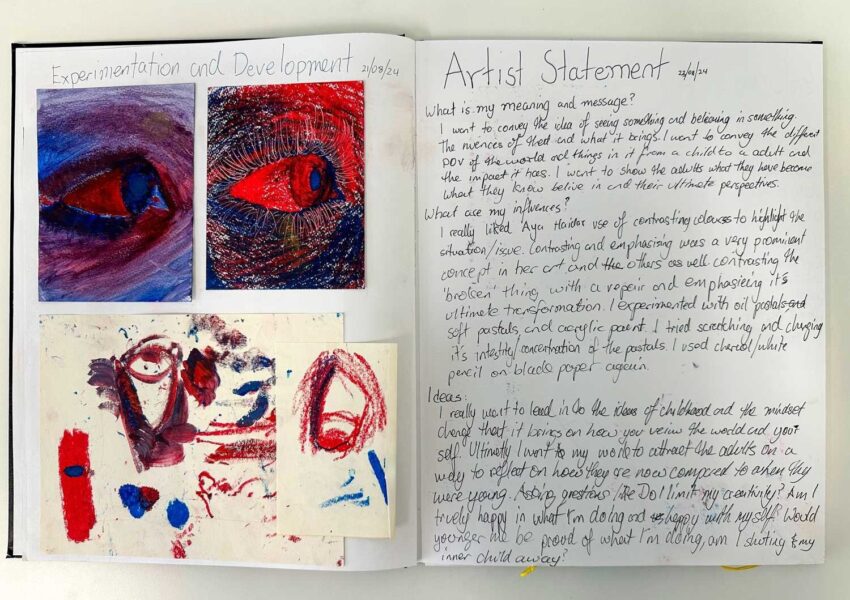 Experimentation and Development 21/08/24
Artist Statement 22/08/24
What is my meaning and message?
I want to convey the idea of seeing something and believing in something.
The nuences of that and what it brings. I want to convey the different
POV of the world and things in it from a child to a adult and
the impact it has. I want to show the adults what they have become
what they know belive in and their ultimate perspectives.
What are my influences?
I really liked Aya Haidar use of contrasting colours to highlight the
situation/issue. Contrasting and emphasising was a very prominent
concept in her art and the others as well contrasting the
'broken' thing with a repair and emphasising it's
ultimate transformation. I experimented with oil pastals and
soft pastals, and acrylic paint. I tried scratching and changing
it's intestity/concentration of the pastals. I used charcol/white
pencil on black paper again.
Ideas:
I really want to lead in to the ideas of childhood and the mindset
change that it brings on how you veiw the world and your
self. Ultimatly I want to my world to attract the adults on a
way to reflect on how they're now compared to when they
were young. Asking questions like Do I limit my creativity? Am I
truely happy in what I'm doing and happy with myself? Would
younger me be proud of what I'm doing, am I shuting my
inner child away?